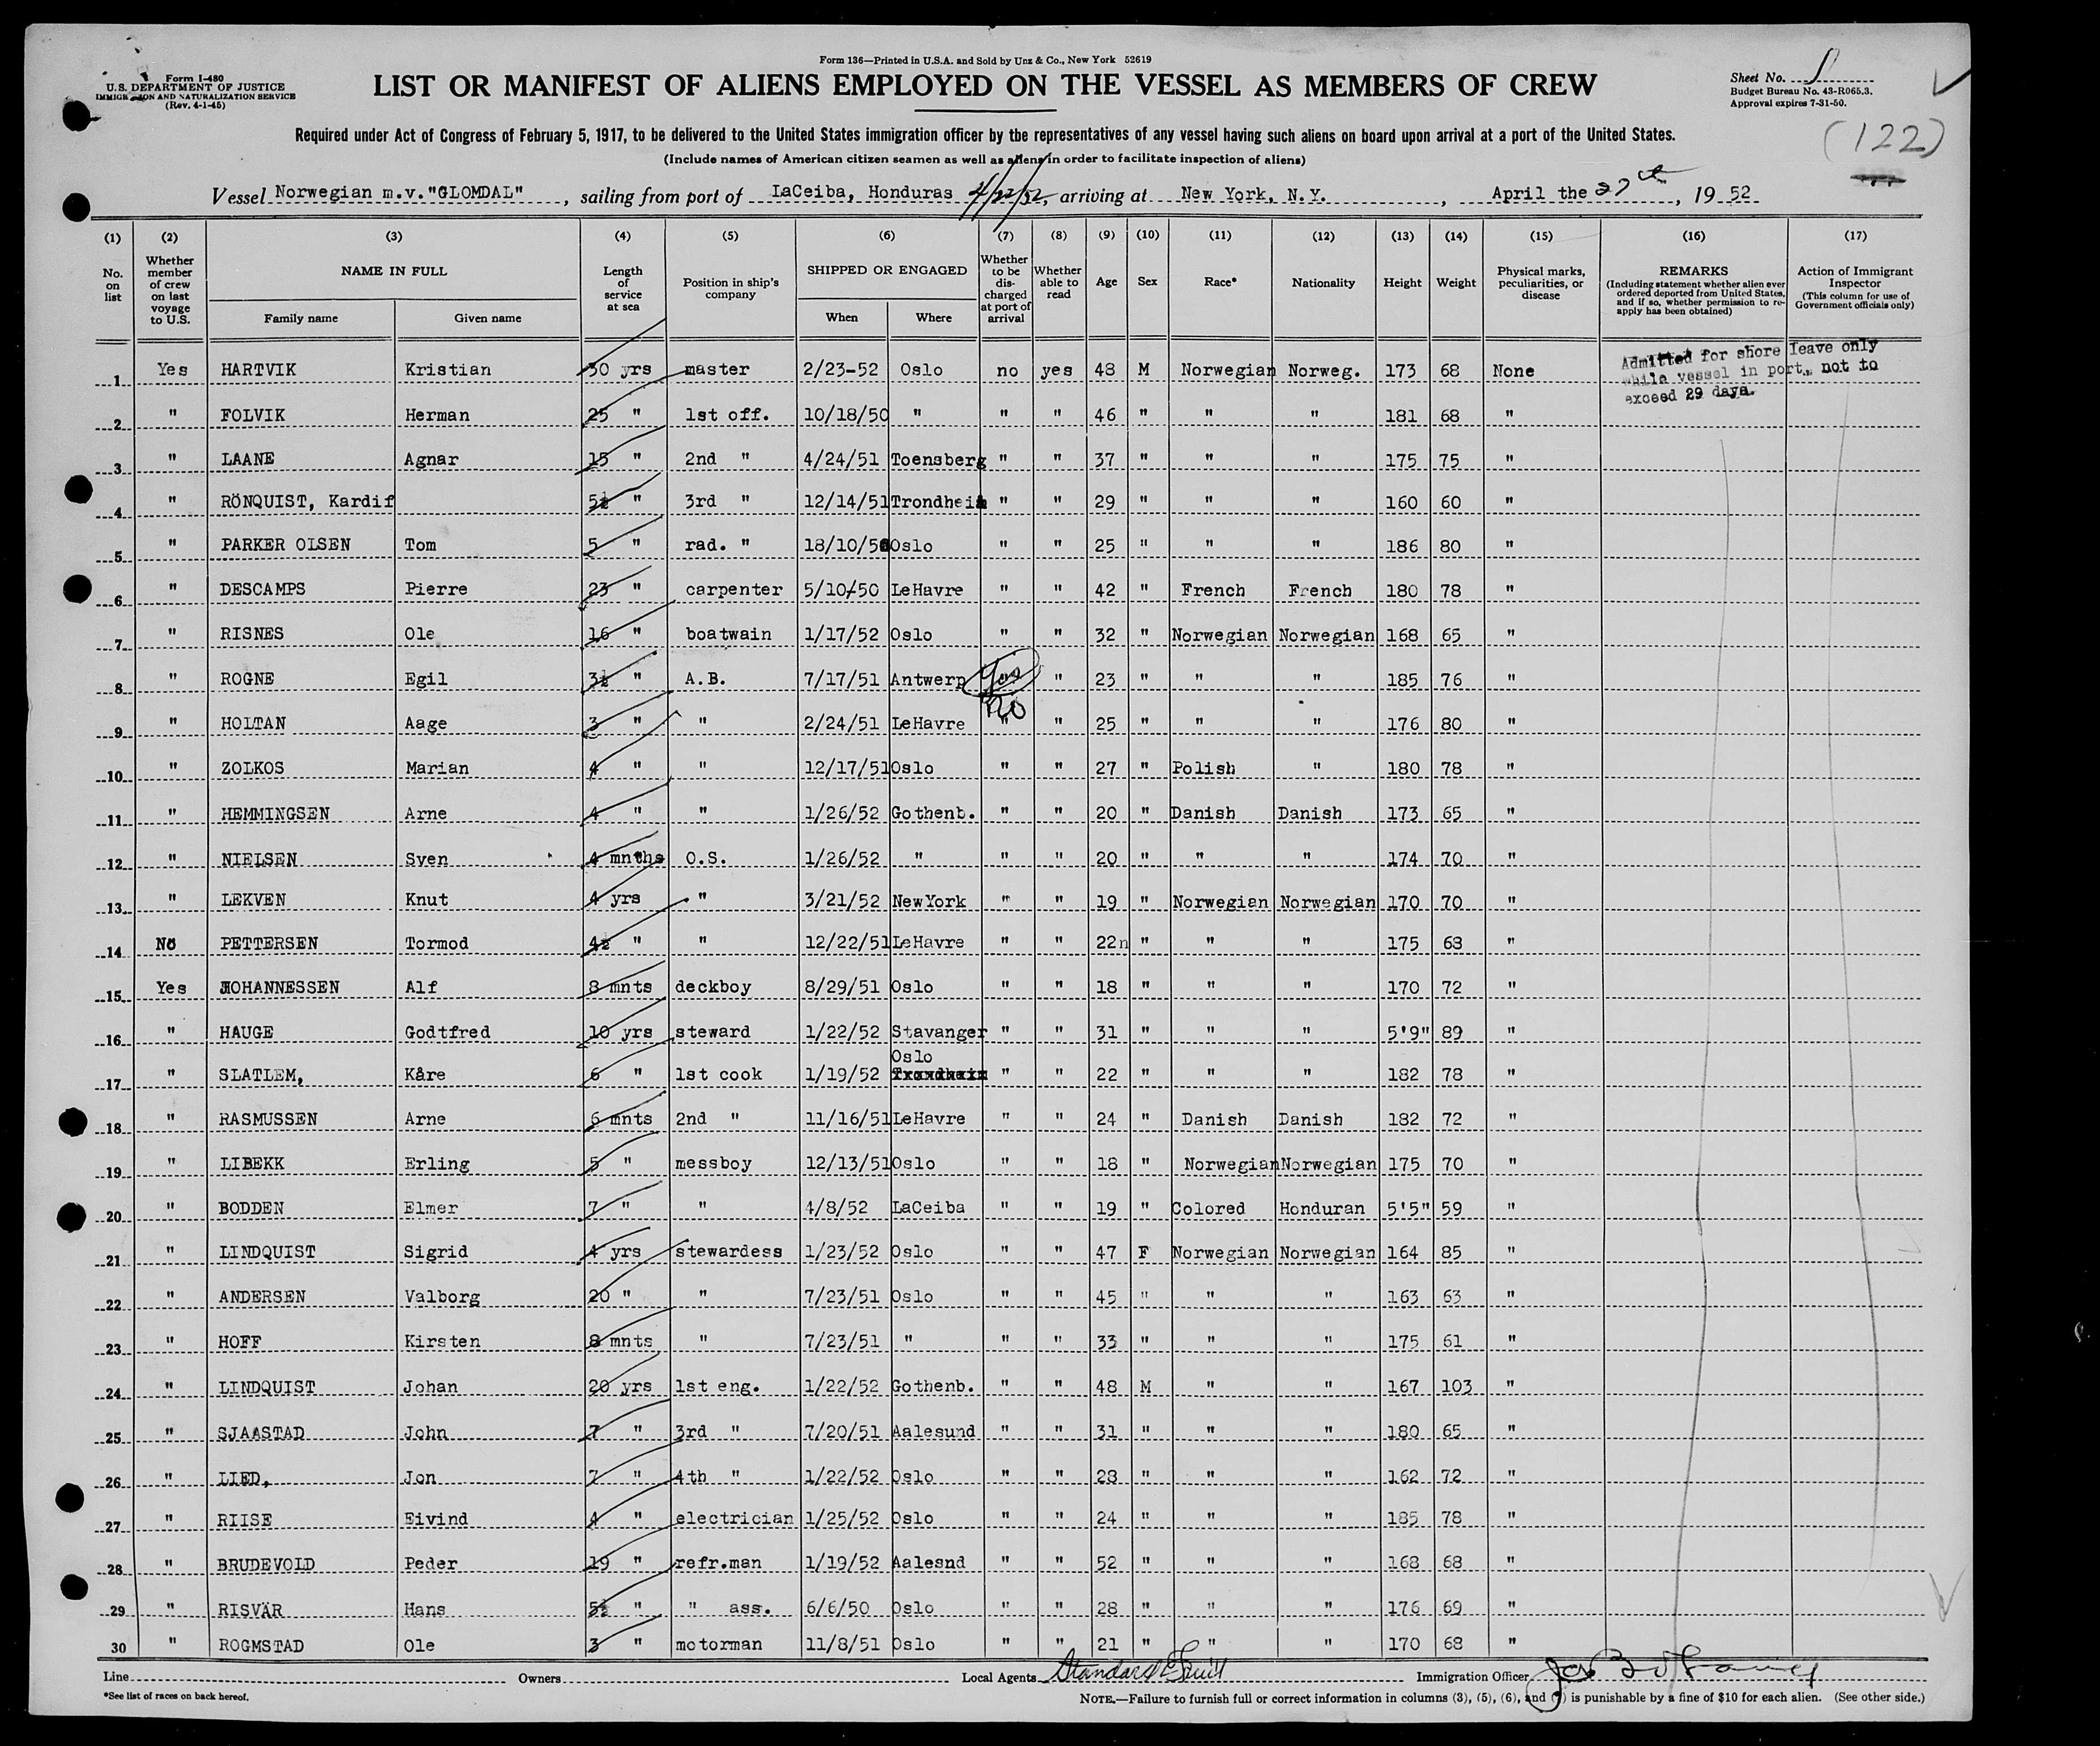 Form 136—Printed in U.S.A. and Sold by Unz & Co., New York 52619
Form I-480
U.S. DEPARTMENT OF JUSTICE
IMMIGRATION AND NATURALIZATION SERVICE
(Rev. 4-1-45)
LIST OR MANIFEST OF ALIENS EMPLOYED ON THE VESSEL AS MEMBERS OF CREW
Sheet No. 1
Budget Bureau No. 43-R065.3.
Approval expires 7-31-50.
(122)
Required under Act of Congress of February 5, 1917, to be delivered to the United States immigration officer by the representatives of any vessel having such aliens on board upon arrival at a port of the United States.
(Include names of American citizen seamen as well as aliens in order to facilitate inspection of aliens)
Vessel Norwegian m.v."GLOMDAL", sailing from port of LaCeiba, Honduras 4/22/52, arriving at New York, N.Y., April the 27th, 1952
(1) (2) (3) (4) (5) (6) (7) (8) (9) (10) (11) (12) (13) (14) (15) (16) (17)
No. on list
Whether member of crew on last voyage to U.S.
NAME IN FULL
Family name Given name
Length of service at sea
Position in ship's company
SHIPPED OR ENGAGED
When Where
Whether to be discharged at port of arrival
Whether able to read
Age
Sex
Race*
Nationality
Height
Weight
Physical marks, peculiarities, or disease
REMARKS
(Including statement whether alien ever ordered deported from United States, and if so, whether permission to re-apply has been obtained)
Action of Immigrant Inspector
(This column for use of Government officials only)
Admitted for shore leave only
while vessel in port, not to
exceed 29 days.
1 Yes HARTVIK Kristian 30 yrs master 2/23-52 Oslo no yes 48 M Norwegian Norweg. 173 68 None
2 " FOLVIK Herman 25 " 1st off. 10/18/50 " " " 46 " " " 181 68 "
3 " LAANE Agnar 15 " 2nd " 4/24/51 Toensberg " " 37 " " " 175 75 "
4 " RÖNQUIST, Kardif 5½ " 3rd " 12/14/51 Trondheim " " 29 " " " 160 60 "
5 " PARKER OLSEN Tom 5 " rad. " 18/10/50 Oslo " " 25 " " " 186 80 "
6 " DESCAMPS Pierre 23 " carpenter 5/10/50 LeHavre " " 42 " French French 180 78 "
7 " RISNES Ole 16 " boatwain 1/17/52 Oslo " " 32 " Norwegian Norwegian 168 65 "
8 " ROGNE Egil 3½ " A.B. 7/17/51 Antwerp Yes " 23 " " " 185 76 "
9 " HOLTAN Aage 3 " " 2/24/51 LeHavre no " " 25 " " " 176 80 "
10 " ZOLKOS Marian 4 " " 12/17/51 Oslo " " 27 " Polish " 180 78 "
11 " HEMMINGSEN Arne 4 " " 1/26/52 Gothenb. " " 20 " Danish Danish 173 65 "
12 " NIELSEN Sven 4 mnths O.S. 1/26/52 " " " 20 " " " 174 70 "
13 " LEKVEN Knut 4 yrs " 3/21/52 NewYork " " 19 " Norwegian Norwegian 170 70 "
14 No PETTERSEN Tormod 4½ " " 12/22/51 LeHavre " " 22n " " " 175 68 "
15 Yes JOHANNESSEN Alf 8 mnts deckboy 8/29/51 Oslo " " 18 " " " 170 72 "
16 " HAUGE Godtfred 10 yrs steward 1/22/52 Stavanger " " 31 " " " 5'9" 89 "
17 " SLATLEM, Kåre 6 " 1st cook 1/19/52 Oslo Trondheim " " 22 " " " 182 78 "
18 " RASMUSSEN Arne 6 mnts 2nd " 11/16/51 LeHavre " " 24 " Danish Danish 182 72 "
19 " LIBEKK Erling 5 " messboy 12/13/51 Oslo " " 18 " Norwegian Norwegian 175 70 "
20 " BODDEN Elmer 7 " " 4/8/52 LaCeiba " " 19 " Colored Honduran 5'5" 59 "
21 " LINDQUIST Sigrid 4 yrs stewardess 1/23/52 Oslo " " 47 F Norwegian Norwegian 164 85 "
22 " ANDERSEN Valborg 20 " " 7/23/51 Oslo " " 45 " " " 163 63 "
23 " HOFF Kirsten 8 mnts " 7/23/51 " " " 33 " " " 175 61 "
24 " LINDQUIST Johan 20 yrs 1st eng. 1/22/52 Gothenb. " " 48 M " " 167 103 "
25 " SJAASTAD John 7 " 3rd " 7/20/51 Aalesund " " 31 " " " 180 65 "
26 " LIED, Jon 7 " 4th " 1/22/52 Oslo " " 28 " " " 162 72 "
27 " RIISE Eivind 4 " electrician 1/25/52 Oslo " " 24 " " " 185 78 "
28 " BRUDEVOLD Peder 19 " refr.man 1/19/52 Aalesnd " " 52 " " " 168 68 "
29 " RISVÄR Hans 5½ " " ass. 6/6/50 Oslo " " 28 " " " 176 69 "
30 " ROGMSTAD Ole 3 " motorman 11/8/51 Oslo " " 21 " " " 170 68 "
Line Owners Local Agents Standard Fruit Immigration Officer
*See list of races on back hereof.
NOTE.—Failure to furnish full or correct information in columns (3), (5), (6), and (7) is punishable by a fine of $10 for each alien. (See other side.)